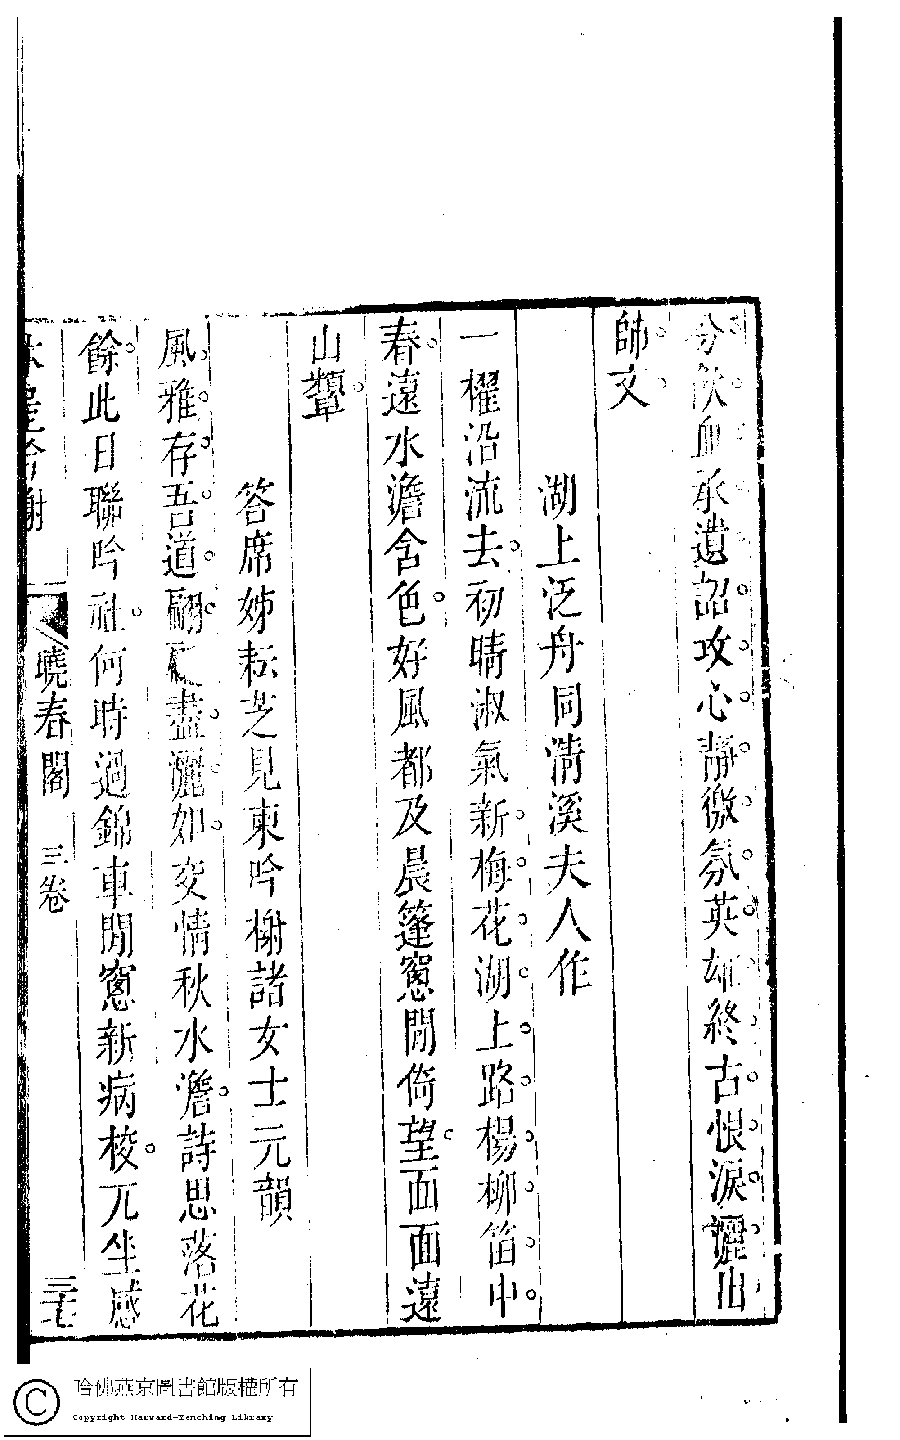 分飲血承遺詔攻心靜微氛英雄終古恨淚灑出
師文
湖上泛舟同清溪夫人作
一櫂沿流去初晴淑氣新梅花湖上路楊柳笛中
春遠水澹含色好風都及晨篷窗閒倚望面面遠
山顰
答席姊耘芝見柬吟榭諸女士元韻
風雅存吾道翩翩盡灑如交情秋水澹詩思落花
餘此日聯吟社何時過錦車閒窗新病校兀坐感
吟榭
曉春閣
三卷
三七
哈佛燕京圖書館版權所有
Copyright Harvard-Yenching Library